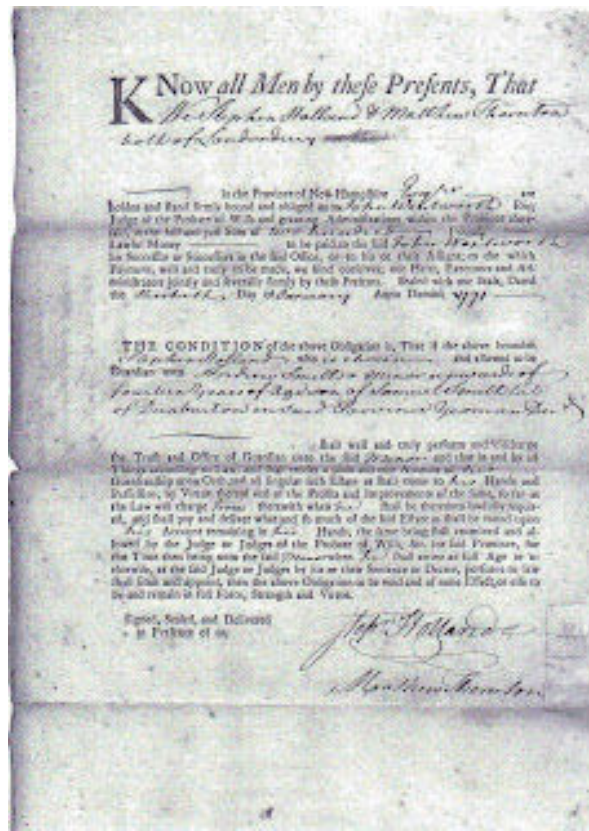 KNow all Men by theſe Preſents, That
We Stephen Holland & Matthew Thornton
both of Londonderry
In the Province of New-Hampſhire Esqrs are
holden and ſtand firmly bound and obliged unto John Wentworth Eſq;
Judge of the Probate of Wills and granting Adminiſtrations within the Province
in the full and juſt Sum of
Lawful Money to be paid to the ſaid John Wentworth
his Succeſſor or Succeſſors in the ſaid Office, or to his or their Aſſigns; to the which
Payment, well and truly to be made, we bind ourſelves, our Heirs, Executors and Ad-
miniſtrators jointly and ſeverally firmly by theſe Preſents. Sealed with our Seals, Dated
the Day of January Anno Domini, 1771
THE CONDITION of the above Obligation is, That if the above bounden
Stephen Holland who is choſen and allowed to be
Guardian unto a minor upwards of
fourteen Years of Age Son of Samuel late
of in ſaid Province Yeoman Decd
ſhall well and truly perform and diſcharge
the Truſt and Office of Guardian unto the ſaid Minor and that in and by all
Things according to Law; and ſhall render a plain and true Account of his
Guardianſhip upon Oath, and all ſuch Eſtate as ſhall come to his Hands and
Poſſeſſion, by Virtue thereof and of the Profits and Improvements of the ſame, ſo far as
the Law will charge him therewith when he ſhall be thereunto lawfully requir-
ed, and ſhall pay and deliver what and ſo much of the ſaid Eſtate as ſhall be found upon
his Account remaining in his Hands, the ſame being firſt examined and al-
lowed by the Judge or Judges of the Probate of Wills, &c. for ſaid Province, for
the Time then being unto the ſaid Minor when he ſhall arrive at full Age or
otherwiſe, as the ſaid Judge or Judges by his or their Sentence or Decree, purſuant to law
ſhall limit and appoint, then the above Obligation to be void and of none Effect, or elſe to
be and remain in full Force, Strength and Virtue.
Signed, Sealed, and Delivered
in Preſence of us,
Stepn Holland
Matthew Thornton